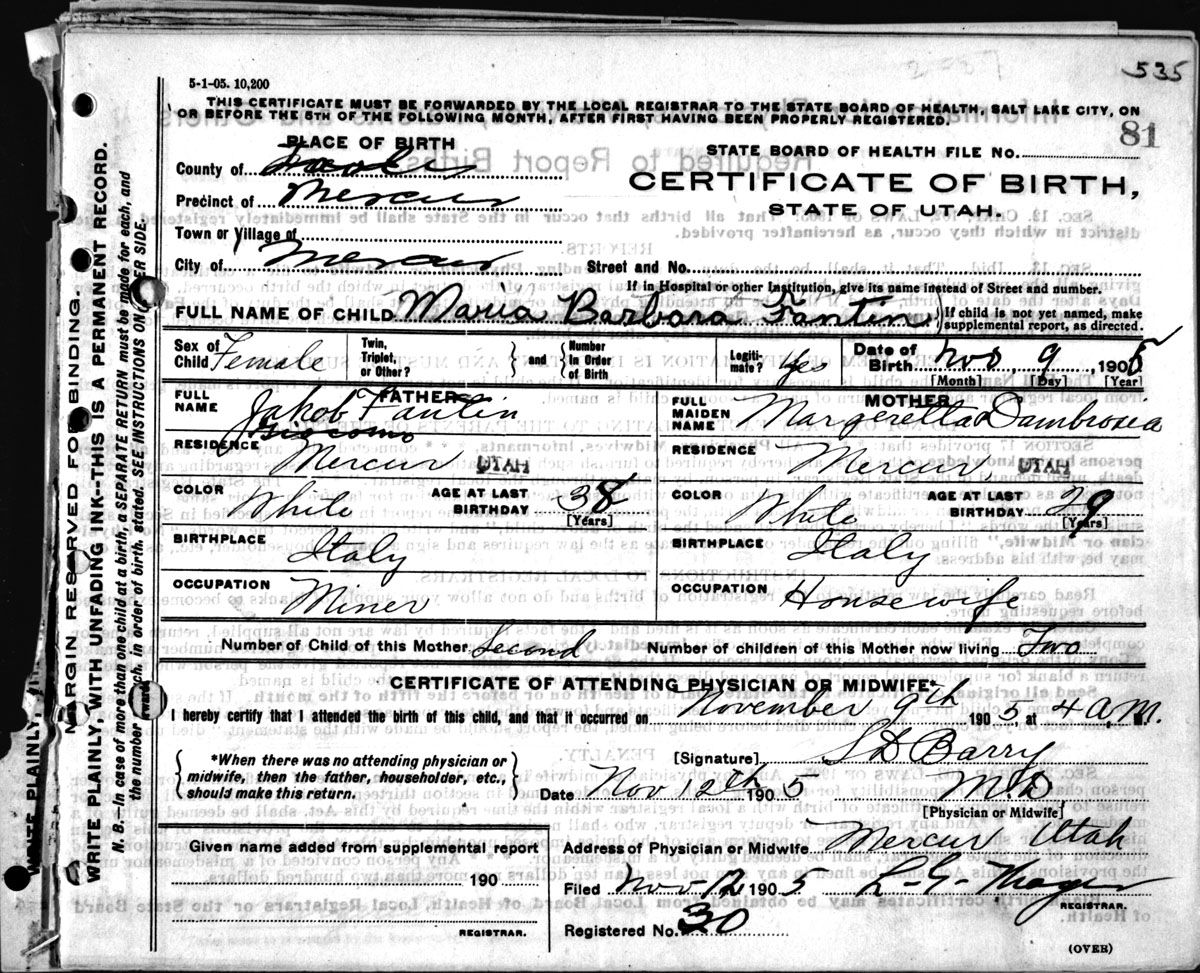 535
5-1-05. 10,200
THIS CERTIFICATE MUST BE FORWARDED BY THE LOCAL REGISTRAR TO THE STATE BOARD OF HEALTH, SALT LAKE CITY, ON
OR BEFORE THE 5TH OF THE FOLLOWING MONTH, AFTER FIRST HAVING BEEN PROPERLY REGISTERED.
81
PLACE OF BIRTH
STATE BOARD OF HEALTH FILE No.
County of Tooele
CERTIFICATE OF BIRTH,
Precinct of Mercur
STATE OF UTAH.
Town or Village of
City of Mercur Street and No.
If in Hospital or other Institution, give its name instead of Street and number.
FULL NAME OF CHILD Maria Barbara Fantin If child is not yet named, make supplemental report, as directed.
Sex of Child Female Twin, Triplet, or Other? and Number In Order of Birth Legitimate? Yes Date of Birth Nov 9 1905
[Month] [Day] [Year]
FATHER MOTHER
FULL NAME Jakob Fantin FULL MAIDEN NAME Margeretta Dambrosia
Giacomo
RESIDENCE Mercur UTAH RESIDENCE Mercur UTAH
COLOR White AGE AT LAST BIRTHDAY 38 [Years] COLOR White AGE AT LAST BIRTHDAY 29 [Years]
BIRTHPLACE Italy BIRTHPLACE Italy
OCCUPATION Miner OCCUPATION Housewife
Number of Child of this Mother Second Number of children of this Mother now living Two
CERTIFICATE OF ATTENDING PHYSICIAN OR MIDWIFE*
I hereby certify that I attended the birth of this child, and that it occurred on November 9th 1905, at 4 A.M.
*When there was no attending physician or midwife, then the father, householder, etc., should make this return.
[Signature] S D Barry
Date Nov 12th 1905 M D
[Physician or Midwife]
Given name added from supplemental report
Address of Physician or Midwife Mercur Utah
190
Filed Nov 12 1905
REGISTRAR.
REGISTRAR.
Registered No. 30
(OVER)
MARGIN RESERVED FOR BINDING.
WRITE PLAINLY WITH UNFADING INK--THIS IS A PERMANENT RECORD.
N. B.--In case of more than one child at a birth, a SEPARATE RETURN must be made for each, and
the number of each, in order of birth, stated. SEE INSTRUCTIONS ON OTHER SIDE.
WRITE PLAINLY,